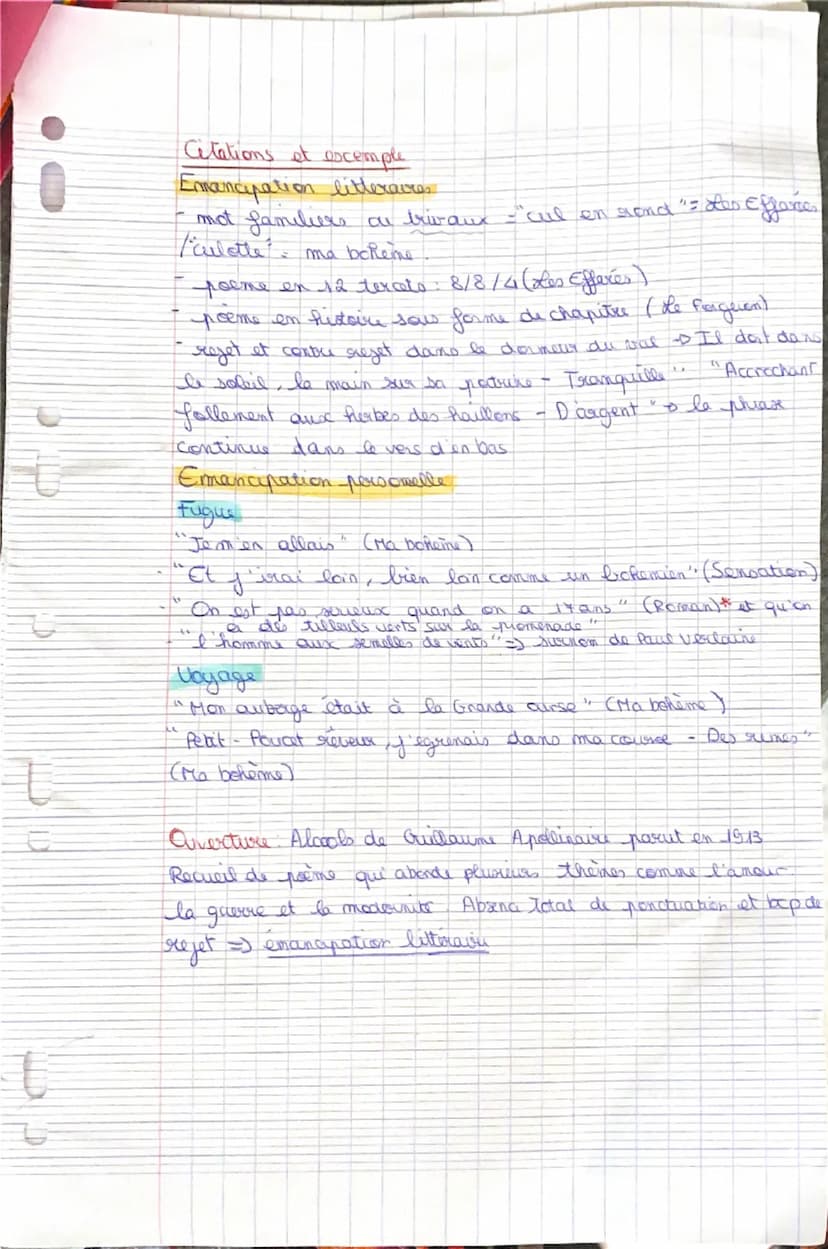 Citations et escemple
Emancipation litteraires
- mot familiers ou trivaux = "cul en rond" = Les Effarées
/"culotte" = ma bohème.
- poeme en 12 tercets : 8/8/4 (Les Effarés)
- poème en histoire sous forme de chapitre (Le Forgeron)
- rejet et contre rejet dans le dormeur du val -> Il dort dans
le soleil, la main sur sa poitrine - Tranquille". "Accrochant
follement aux herbes des haillons - D'argent" -> la phrase
continue dans le vers d'en bas
Emancipation personnelle
Fugue
"Je m'en allais" (Ma bohème)
- "Et j'irai loin, bien loin comme un bohemien". (Sensation)
- "On est pas serieux quand on a 17 ans" (Roman)* et qu'on
a des tilleuls verts sur la promenade"
- "l'homme aux semelles de vents" => surnom de Paul Verlaine
Voyage
"Mon auberge était à la Grande ourse" (Ma bohème)
"Petit - Poucet rêveur, j'égrenais dans ma course - Des rimes"
(Ma bohème)
Ouverture: Alcools de Guillaume Apollinaire parut en 1913
Recueil de poème qui aborde plusieurs thèmes comme l'amour
la guerre et la modernité. Absence Total de ponctuation et bcp de
rejet => émancipation littéraire